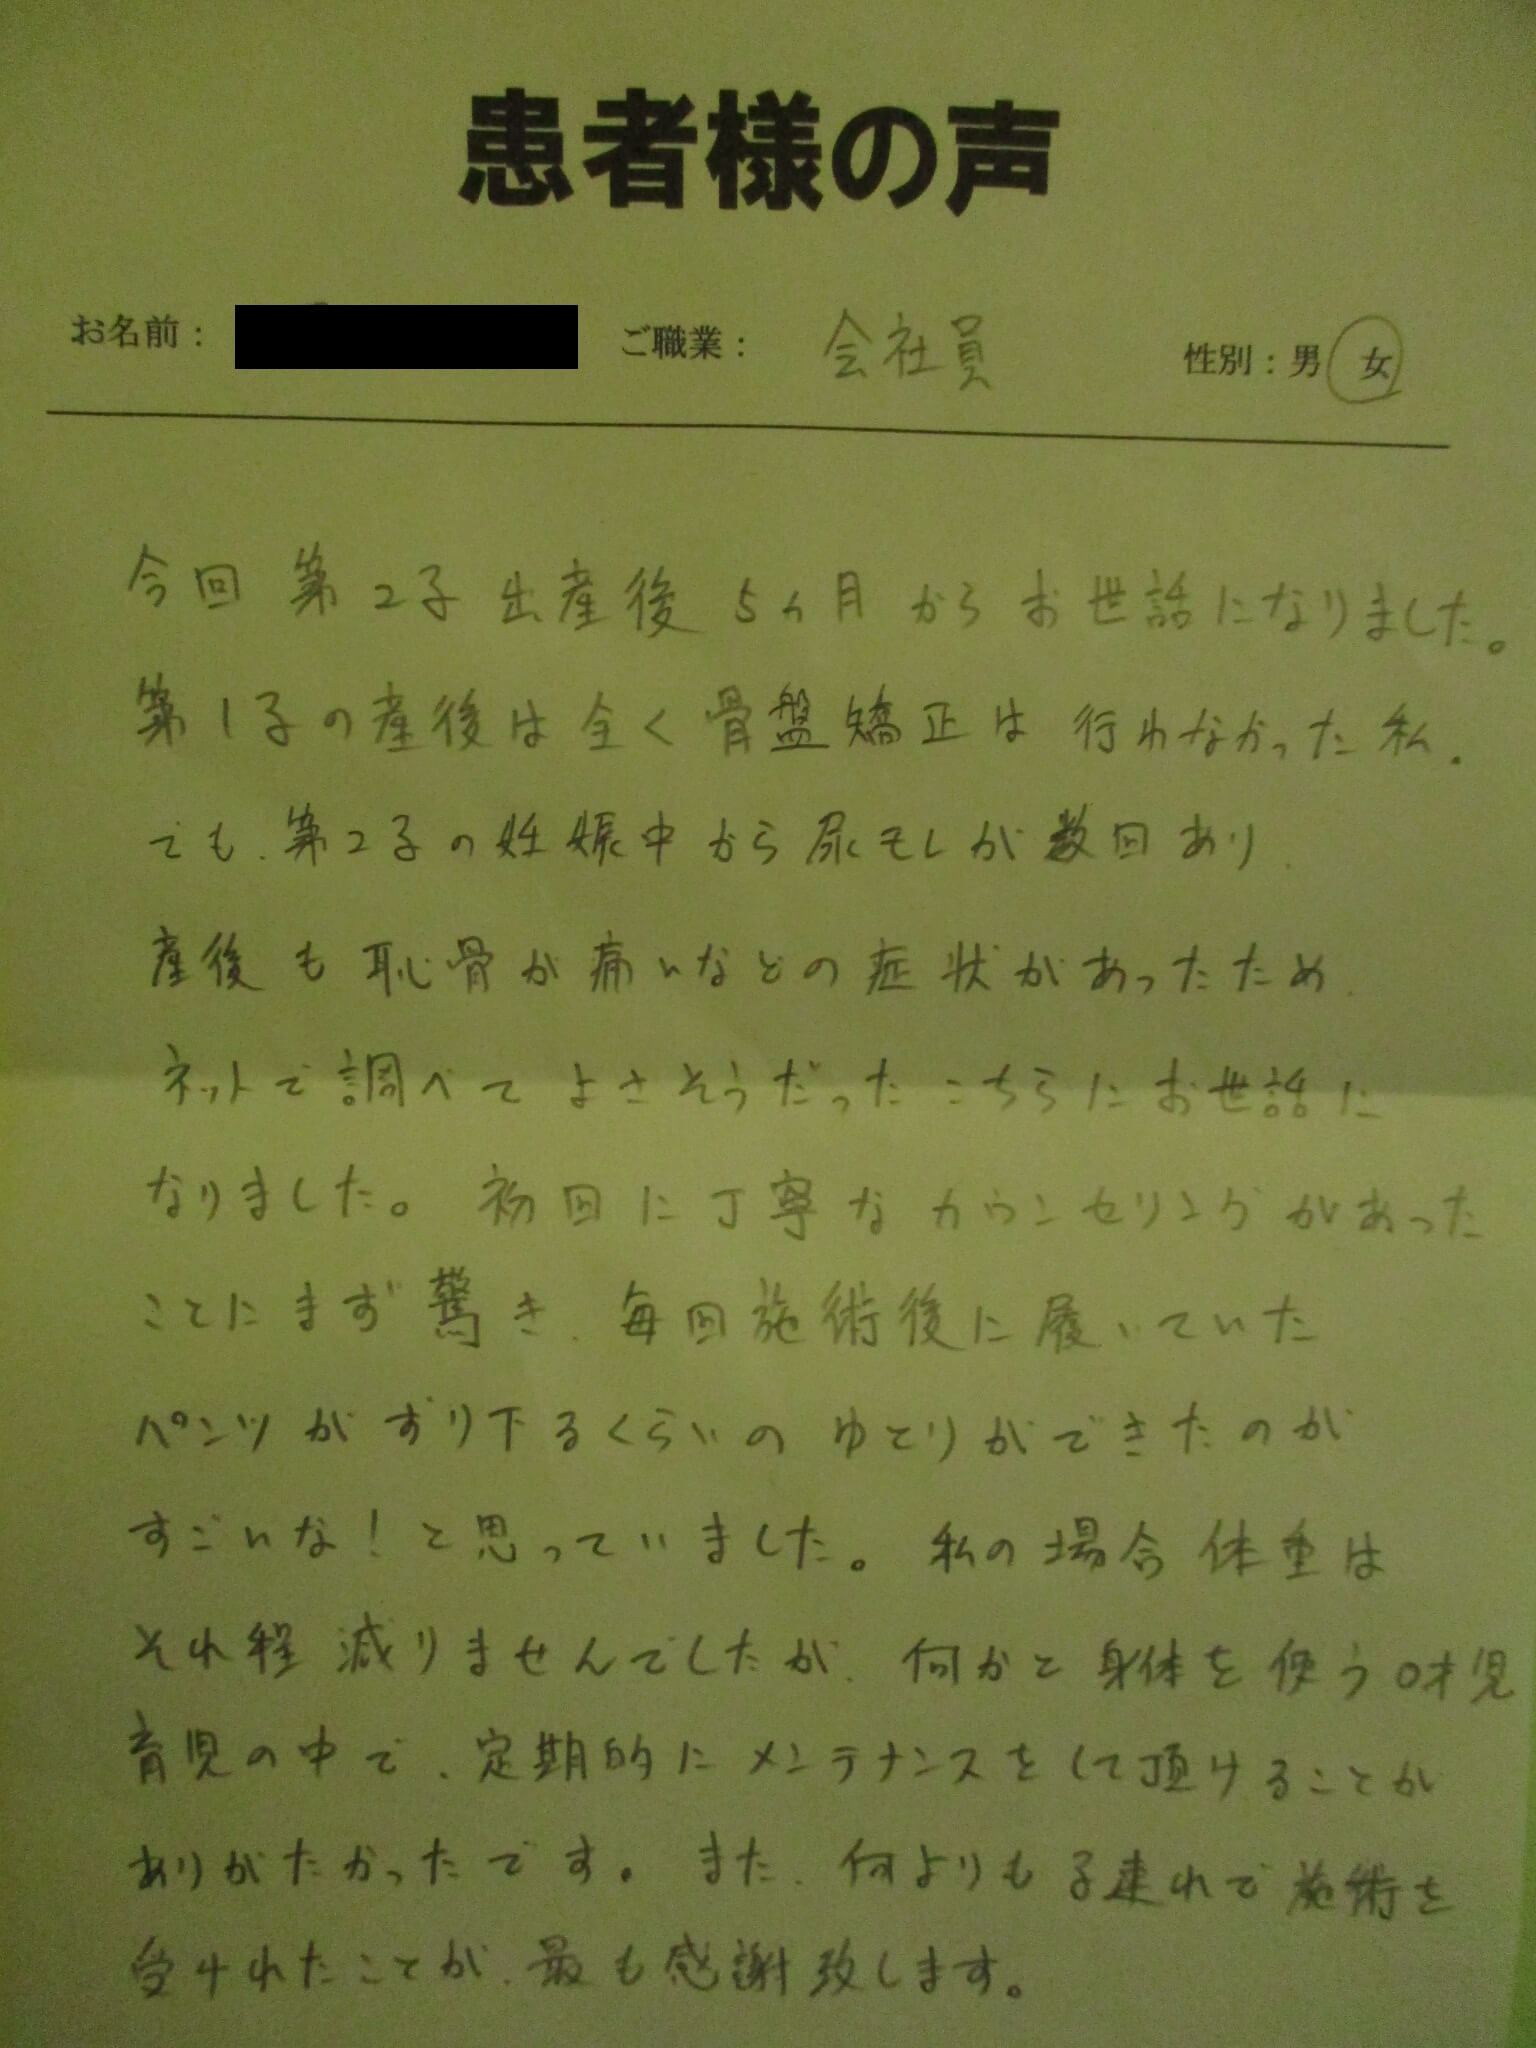 患者様の声
お名前： ご職業： 会社員 性別：男 女
今回 第2子 出産後 5ヵ月 からお世話になりました。
第1子の産後は全く骨盤矯正は行わなかった私.
でも、第2子の妊娠中から尿モレが数回あり、
産後も恥骨が痛いなどの症状があったため、
ネットで調べてよさそうだったこちらにお世話に
なりました。初回に丁寧なカウンセリングがあった
ことにまず驚き、毎回施術後に履いていた
パンツがずり下るくらいのゆとりができたのが
すごいな！と思っていました。私の場合体重は
それ程減りませんでしたが、何かと身体を使う0才児
育児の中で、定期的にメンテナンスをして頂けることが
ありがたかったです。また、何よりも子連れで施術を
受けれたことが、最も感謝致します。